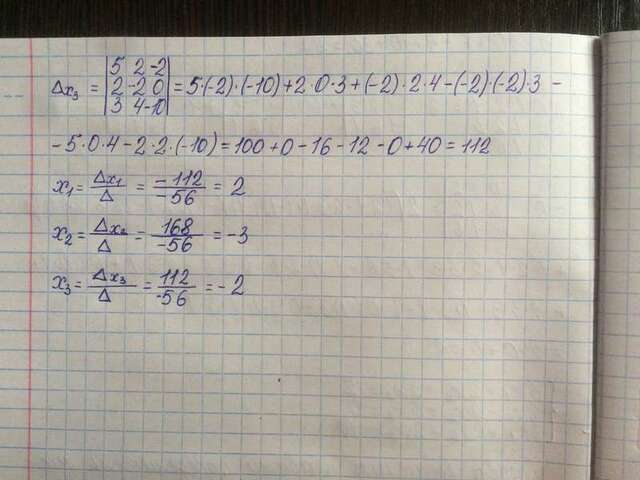 Δx₃ = |5 2 -2; 2 -2 0; 3 4 -10| = 5·(-2)·(-10)+2·0·3+(-2)·2·4-(-2)(-2)·3 -
-5·0·4-2·2·(-10)=100+0-16-12-0+40=112
x₁=Δx₁/Δ = -112/-56 = 2
x₂=Δx₂/Δ = 168/-56 = -3
x₃=Δx₃/Δ = 112/-56 = -2